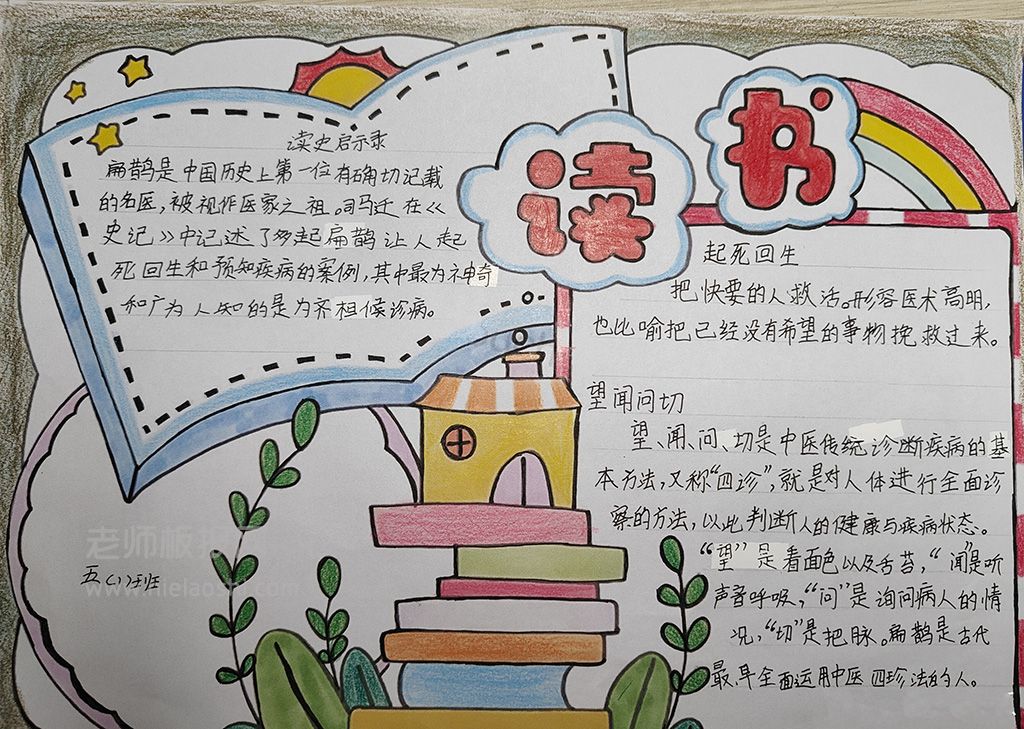 读书
读史启示录
扁鹊是中国历史上第一位有确切记载
的名医,被视作医家之祖。司马迁在《
史记》中记述了多起扁鹊让人起
死回生和预知疾病的案例,其中最为神奇
和广为人知的是为齐相候诊病。
起死回生
把快要的人救活。形容医术高明,
也比喻把已经没有希望的事物挽救过来。
望闻问切
望、闻、问、切是中医传统诊断疾病的基
本方法,又称“四诊”,就是对人体进行全面诊
察的方法,以此判断人的健康与疾病状态。
“望”是看面色以及舌苔,“闻”是听
声音呼吸,“问”是询问病人的情
况,“切”是把脉。扁鹊是古代
最早全面运用中医四珍法的人。
五(1)班
老师板报